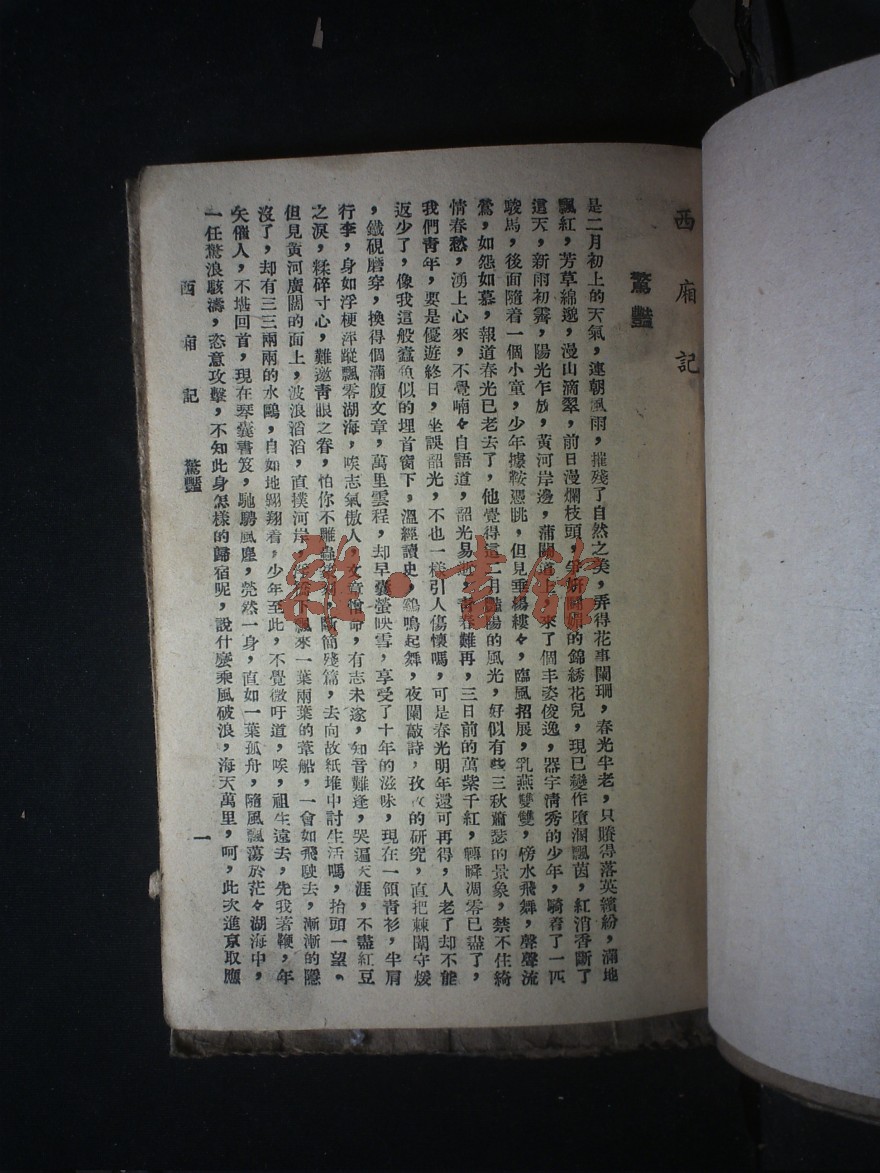 西廂記
驚豔
是二月初上的天氣，連朝風雨，摧殘了自然之美，弄得花事闌珊，春光半老，只賸得落英繽紛，滿地
飄紅，芳草綿邈，漫山滴翠，前日漫爛枝頭，爭妍鬬的錦綉花兒，現已變作墮溷飄茵，紅消香斷了
這天，新雨初霽，陽光乍放，黃河岸邊，蒲關上，來了個丰姿俊逸，器宇清秀的少年，騎着了一匹
駿馬，後面隨着一個小童，少年據鞍憑眺，但見垂楊縷々，臨風招展，乳燕雙雙，傍水飛舞，聲聲流
鶯，如怨如慕，報道春光已老去了，他覺得這二月豔陽的風光，好似有些三秋蕭瑟的景象，禁不住綺
情春愁，湧上心來，不覺喃々自語道，韶光易逝，青春難再，三日前的萬紫千紅，轉瞬凋零已盡了，
我們青年，要是優遊終日，坐誤韶光，不也一樣引人傷懷嗎，可是春光明年還可再得，人老了却不能
返少了，像我這般蠹魚似的埋首窗下，溫經讀史，鷄鳴起舞，夜闌敲詩，孜孜的研究，直把棘闈守煖
，鐵硯磨穿，換得個滿腹文章，萬里雲程，却早囊螢映雪，享受了十年的滋味，現在一領青衫，半肩
行李，身如浮梗萍蹤飄零湖海，唉志氣傲人，文章憎命，有志未遂，知音難逢，哭遍天涯，不盡紅豆
之淚，糅碎寸心，難邀靑眼之眷，怕你不雕蟲，斷簡殘篇，去向故紙堆中討生活嗎，抬頭一望，
但見黃河廣闊的面上，波浪滔滔，直撲河岸，下飄來一葉兩葉的葦船，一會如飛駛去，漸漸的隱
沒了，却有三三兩兩的水鷗，自如地翱翔着，少年至此，不覺微吁道，唉，祖生遠去，先我著鞭，年
矢催人，不堪回首，現在琴囊書笈，馳騁風塵，煢然一身，直如一葉孤舟，隨風飄蕩於茫々湖海中，
一任驚浪駭濤，恣意攻擊，不知此身怎樣的歸宿呢，說什麼乘風破浪，海天萬里，呵，此次進京取應
西廂記 驚豔 一
雜·書館